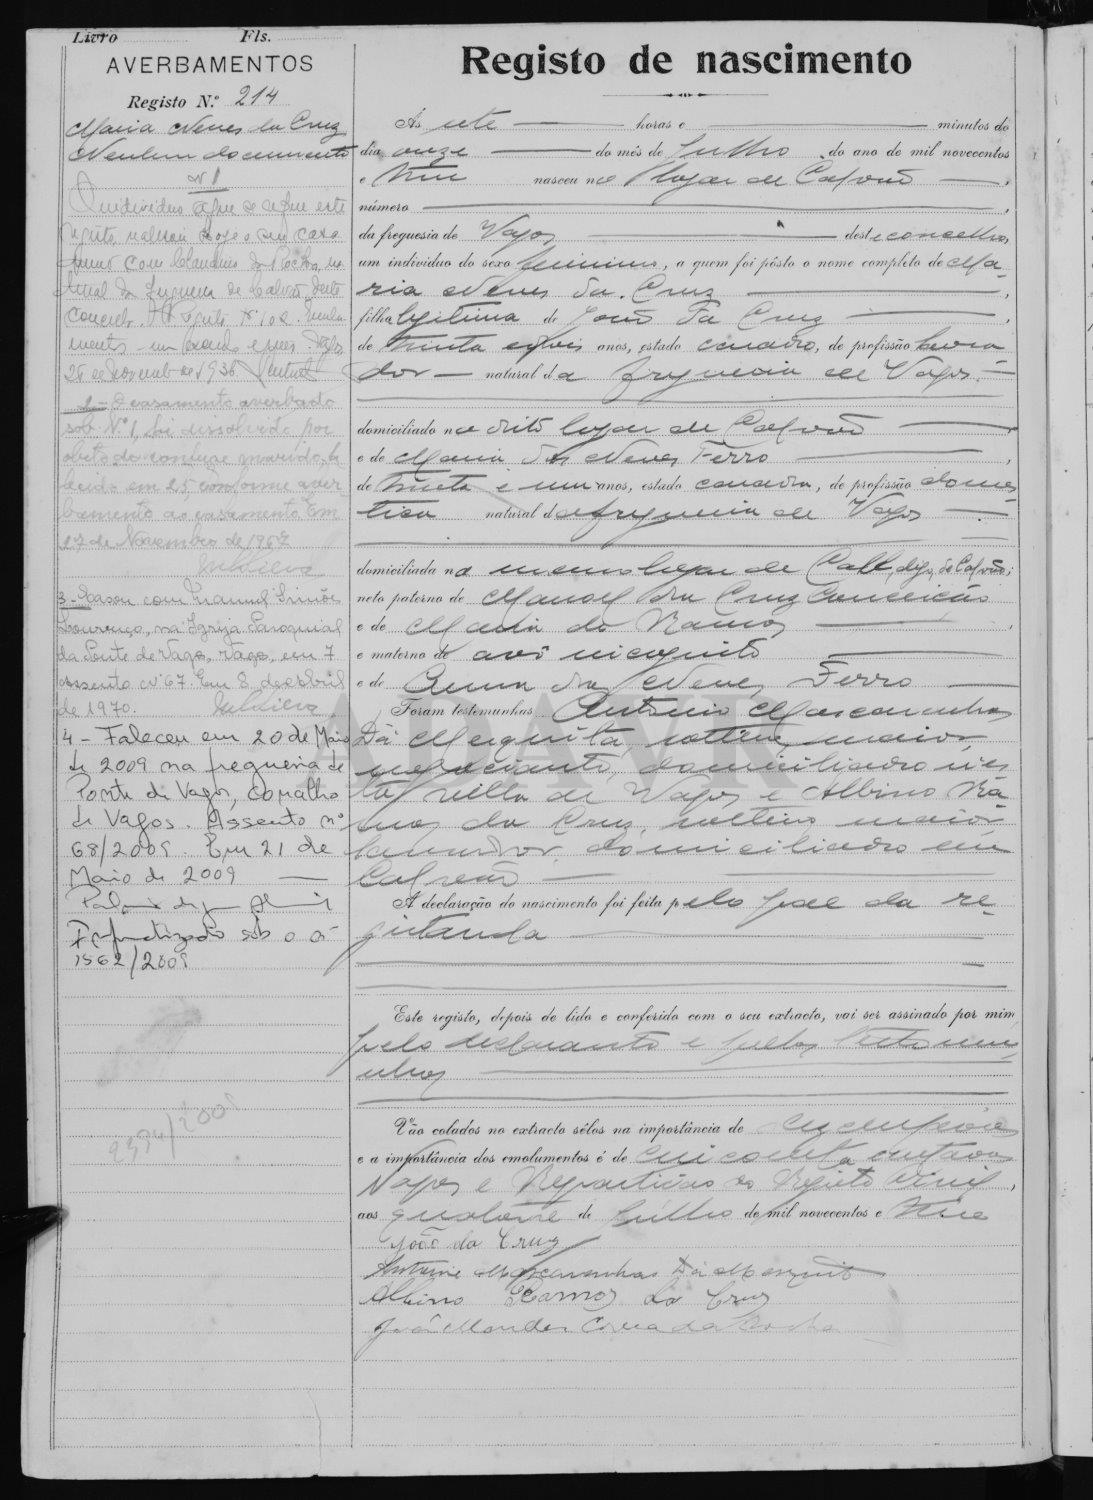 Livro Fls.
AVERBAMENTOS
Registo N.º 214
Maria Neves da Cruz
Nenhum documento
Nº 1
O individuo a que se refere este
registo, realizou hoje o seu casa
mento com Claudino da Rocha, na
da freguesia de Calvão, deste
concelho. Registo nº 102.
Vagos
28 de Novembro de 1936
2 - O casamento averbado
sob Nº 1, foi dissolvido por
óbito do conjuge marido, fa
lecido em 25, conforme aver
bamento ao casamento. Em
27 de Novembro de 1967
3 - Casou com Manuel Simões
Lourenço, na Igreja Paroquial
da Ponte de Vagos, Vagos, em 7
assento nº 67. Em 8 de Abril
de 1970.
4 - Faleceu em 20 de Maio
de 2009 na freguesia de
Ponte de Vagos, concelho
de Vagos. Assento nº
68/2009. Em 21 de
Maio de 2009
Informatizado sob o nº
1562/2009
2394/2009
Registo de nascimento
Ás sete horas e minutos do
dia onze do mês de Julho do ano de mil novecentos
e nasceu no lugar de Calvão,
número
da freguesia de Vagos deste concelho,
um individuo do sexo feminino, a quem foi pôsto o nome completo de Ma-
ria Neves da Cruz,
filha legitima de João da Cruz,
de trinta e anos, estado casado, de profissão lavra
dor natural da freguesia de Vagos
domiciliado no dito lugar de Calvão
e de Maria das Neves Ferro,
de trinta e um anos, estado casada, de profissão domes
tica natural da freguesia de Vagos
domiciliada no mesmo lugar de Call, digo, de Calvão;
neto paterno de Manoel da Cruz Conceição
e de Maria de Ramos
e materno de avô incognito
e de Anna das Neves Ferro
Foram testemunhas Antonio Mascarenhas
Dá Mesquita, solteiro, maior,
negociante, domiciliado n'es
ta villa de Vagos e Albino Ra
mos da Cruz, solteiro, maior,
lavrador, domiciliado em
Calvão
A declaração do nascimento foi feita pelo pae da re-
gistanda
Este registo, depois de lido e conferido com o seu extracto, vai ser assinado por mim,
pelo declarante e pelas testemu
nhas
Vão colados no extracto sêlos na importância de
e a importância dos emolumentos é de cincoenta centavos
Vagos e Repartição do Registo Civil,
aos quatorze de Julho de mil novecentos e
João da Cruz
Antonio Mascarenhas Dá Mesquita
Albino Ramos da Cruz
João Mendes Correa da Rocha
ADAVR